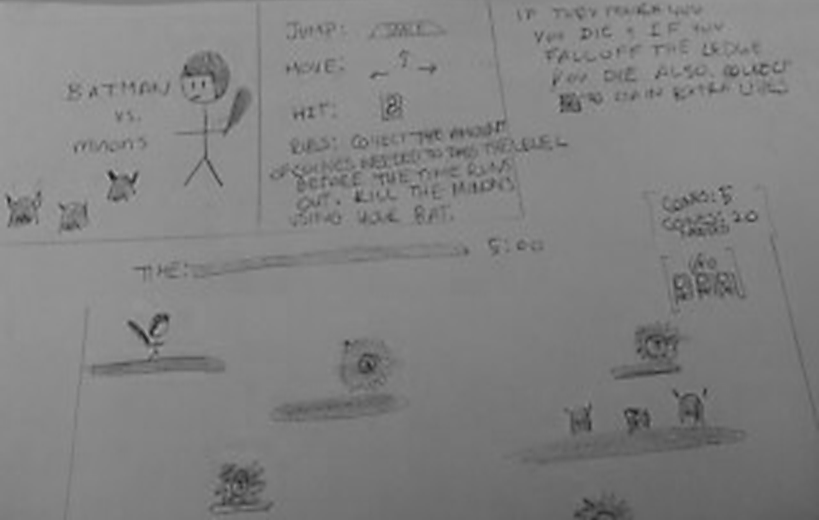 BATMAN
VS.
MINIONS
JUMP: SPACE
MOVE:
HIT:
RULES: COLLECT THE AMOUNT
OF COINS NEEDED TO PASS THE LEVEL
BEFORE THE TIME RUNS
OUT. KILL THE MINIONS
USING YOUR BAT.
IF THEY TOUCH YOU
YOU DIE & IF YOU
FALL OFF THE LEDGE
YOU DIE ALSO. COLLECT
TO GAIN EXTRA LIVES
TIME: 5:00
COINS: 5
COINS: 20
NEEDED